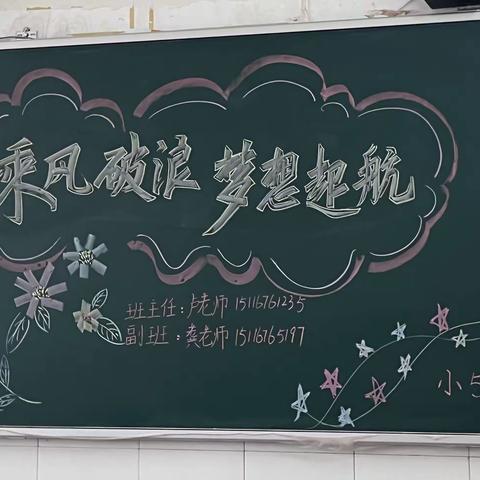 乘风破浪 梦想起航
班主任：卢老师 15116761235
副班：龚老师 15116765197
小5